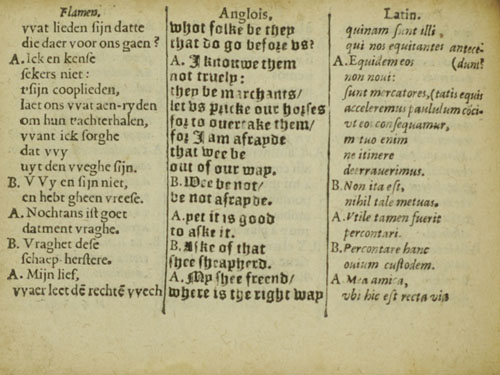 Flamen.
vvat lieden sijn datte
die daer voor ons gaen?
A. Ick en kense
sekers niet:
t'sijn cooplieden,
laet ons vvat aen-ryden
om hun t'achterhalen,
vvant ick sorghe
dat vvy
uyt den vveghe sijn.
B. VVy en sijn niet,
en hebt gheen vreese.
A. Nochtans ist goet
datment vraghe.
B. Vraghet dese
schaep-herstere.
A. Mijn lief,
vvaer leet dē rechtē vvech
Anglois.
whot folke be they
that do go before vs?
A. I knowe them
not truely:
they be marchants/
let vs pricke our horses
for to overtake them/
for I am afrayde
that wee be
out of our way.
B. Wee be not/
be not afrayde.
A. yet it is good
to aske it.
B. Aske of that
shee sheapherd.
A. My shee freend/
where is the right way
Latin.
quinam sunt illi,
qui nos equitantes antece-
A. Equidem eos (dunt?
non noui:
sunt mercatores, (tatis equit
acceleremus paululum cōci-
vt eos consequamur,
m tuo enim
ne itinere
deerrauerimus.
B. Non ita est,
nihil tale metuas.
A. Vtile tamen fuerit
percontari.
B. Percontare hanc
ouium custodem.
A. Mea amica,
vbi hic est recta via